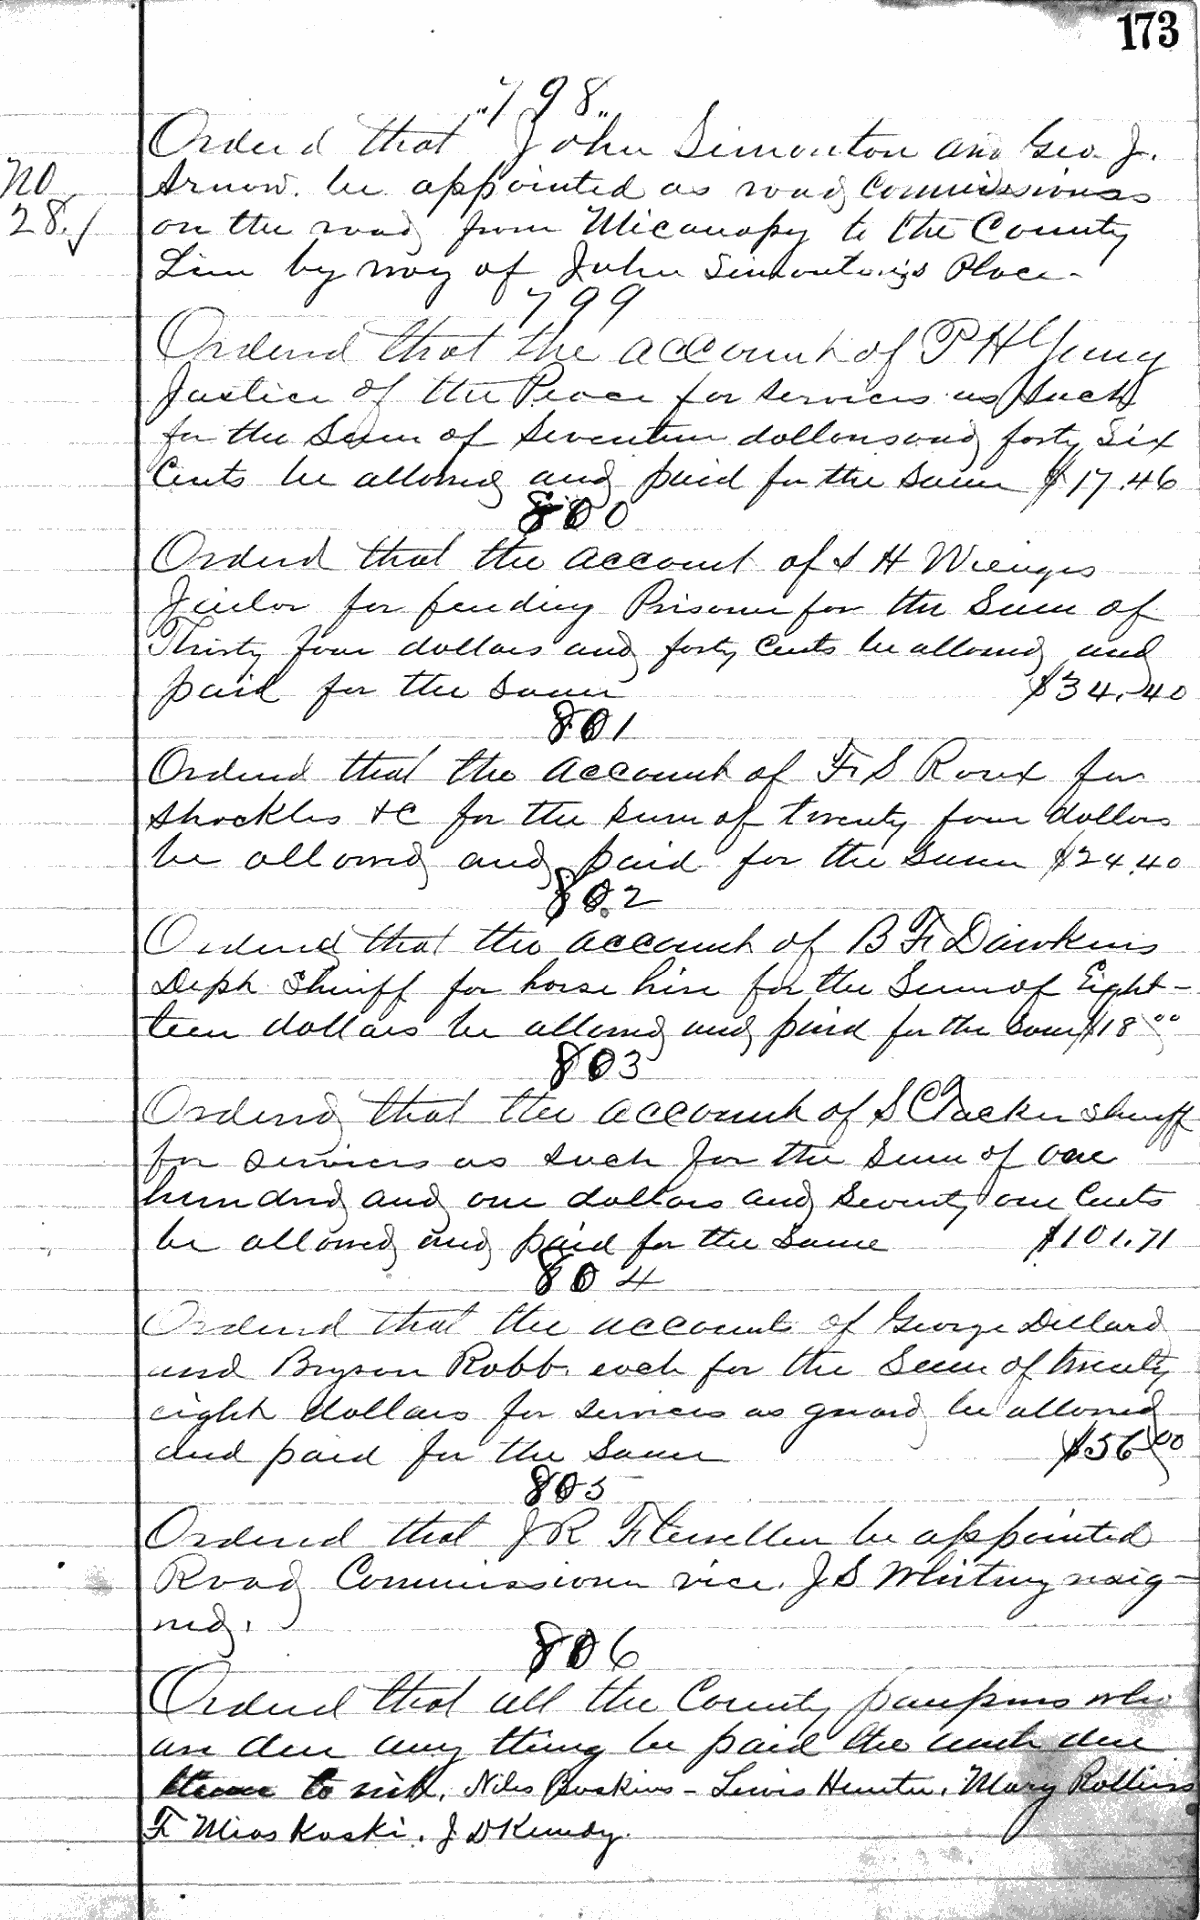 173
"798"
Ordered that John Simonton and Geo. J.
No
28.
Arnow. be appointed as road Commissioners
on the road from Micanopy to the County
Line by way of John Simonton's Place -
799
Ordered that the account of P H Young
Justice of the Peace for services as such
for the Sum of Seventeen dollars and forty Six
Cents be allowed and paid for the same $17.46
800
Ordered that the account of S H Wienges
Jailor for feeding Prisoner for the Sum of
Thirty four dollars and forty Cents be allowed and
paid for the same $34.40
801
Ordered that the account of F. S Roux for
Shackles &C for the sum of twenty four dollars
be allowed and paid for the same $24.40
802
Ordered that the account of B F. Dawkins
Depty Sheriff for horse hire for the Sum of Eight-
teen dollars be allowed and paid for the same $18 00
803
Ordered that the account of S C Tucker Sheriff
for services as such for the Sum of one
hundred and one dollars and Seventy one Cents
be allowed and paid for the same $101.71
804
Ordered that the accounts of George Dillard
and Bryson Robb. each for the Sum of twenty
eight dollars for services as guard be allowed
and paid for the same $56 00
805
Ordered that J R Flewellen be appointed
Road Commissioner vice. J S Whitney resig-
ned.
806
Ordered that all the County paupers who
are due any thing be paid the amts due
them to wit. Niles Buskins - Lewis Hunter. Mary Rollins
F Mias Kaski. J D Kendy.